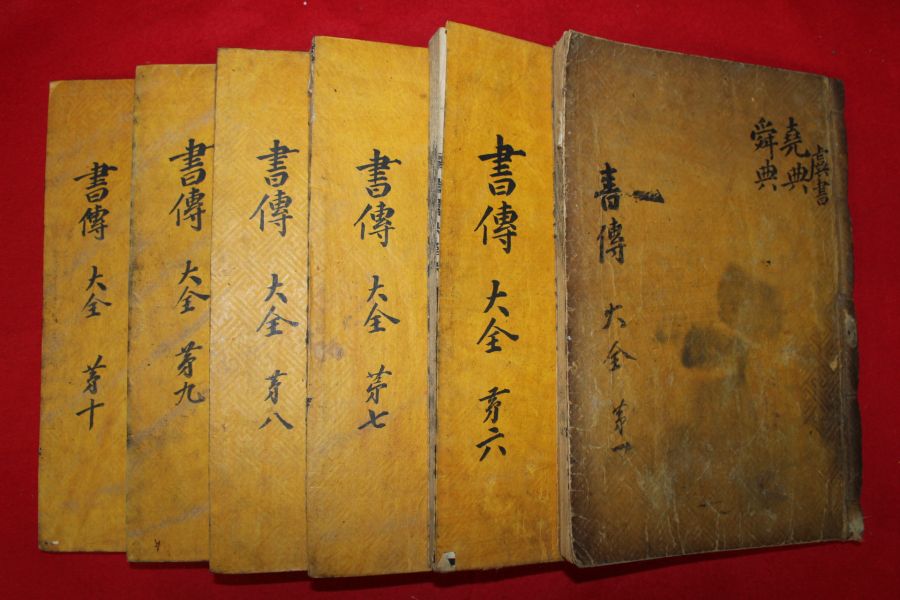 虞書
堯典
舜典
書傳 大全 第一
書傳 大全 第六
書傳 大全 第七
書傳 大全 第八
書傳 大全 第九
書傳 大全 第十